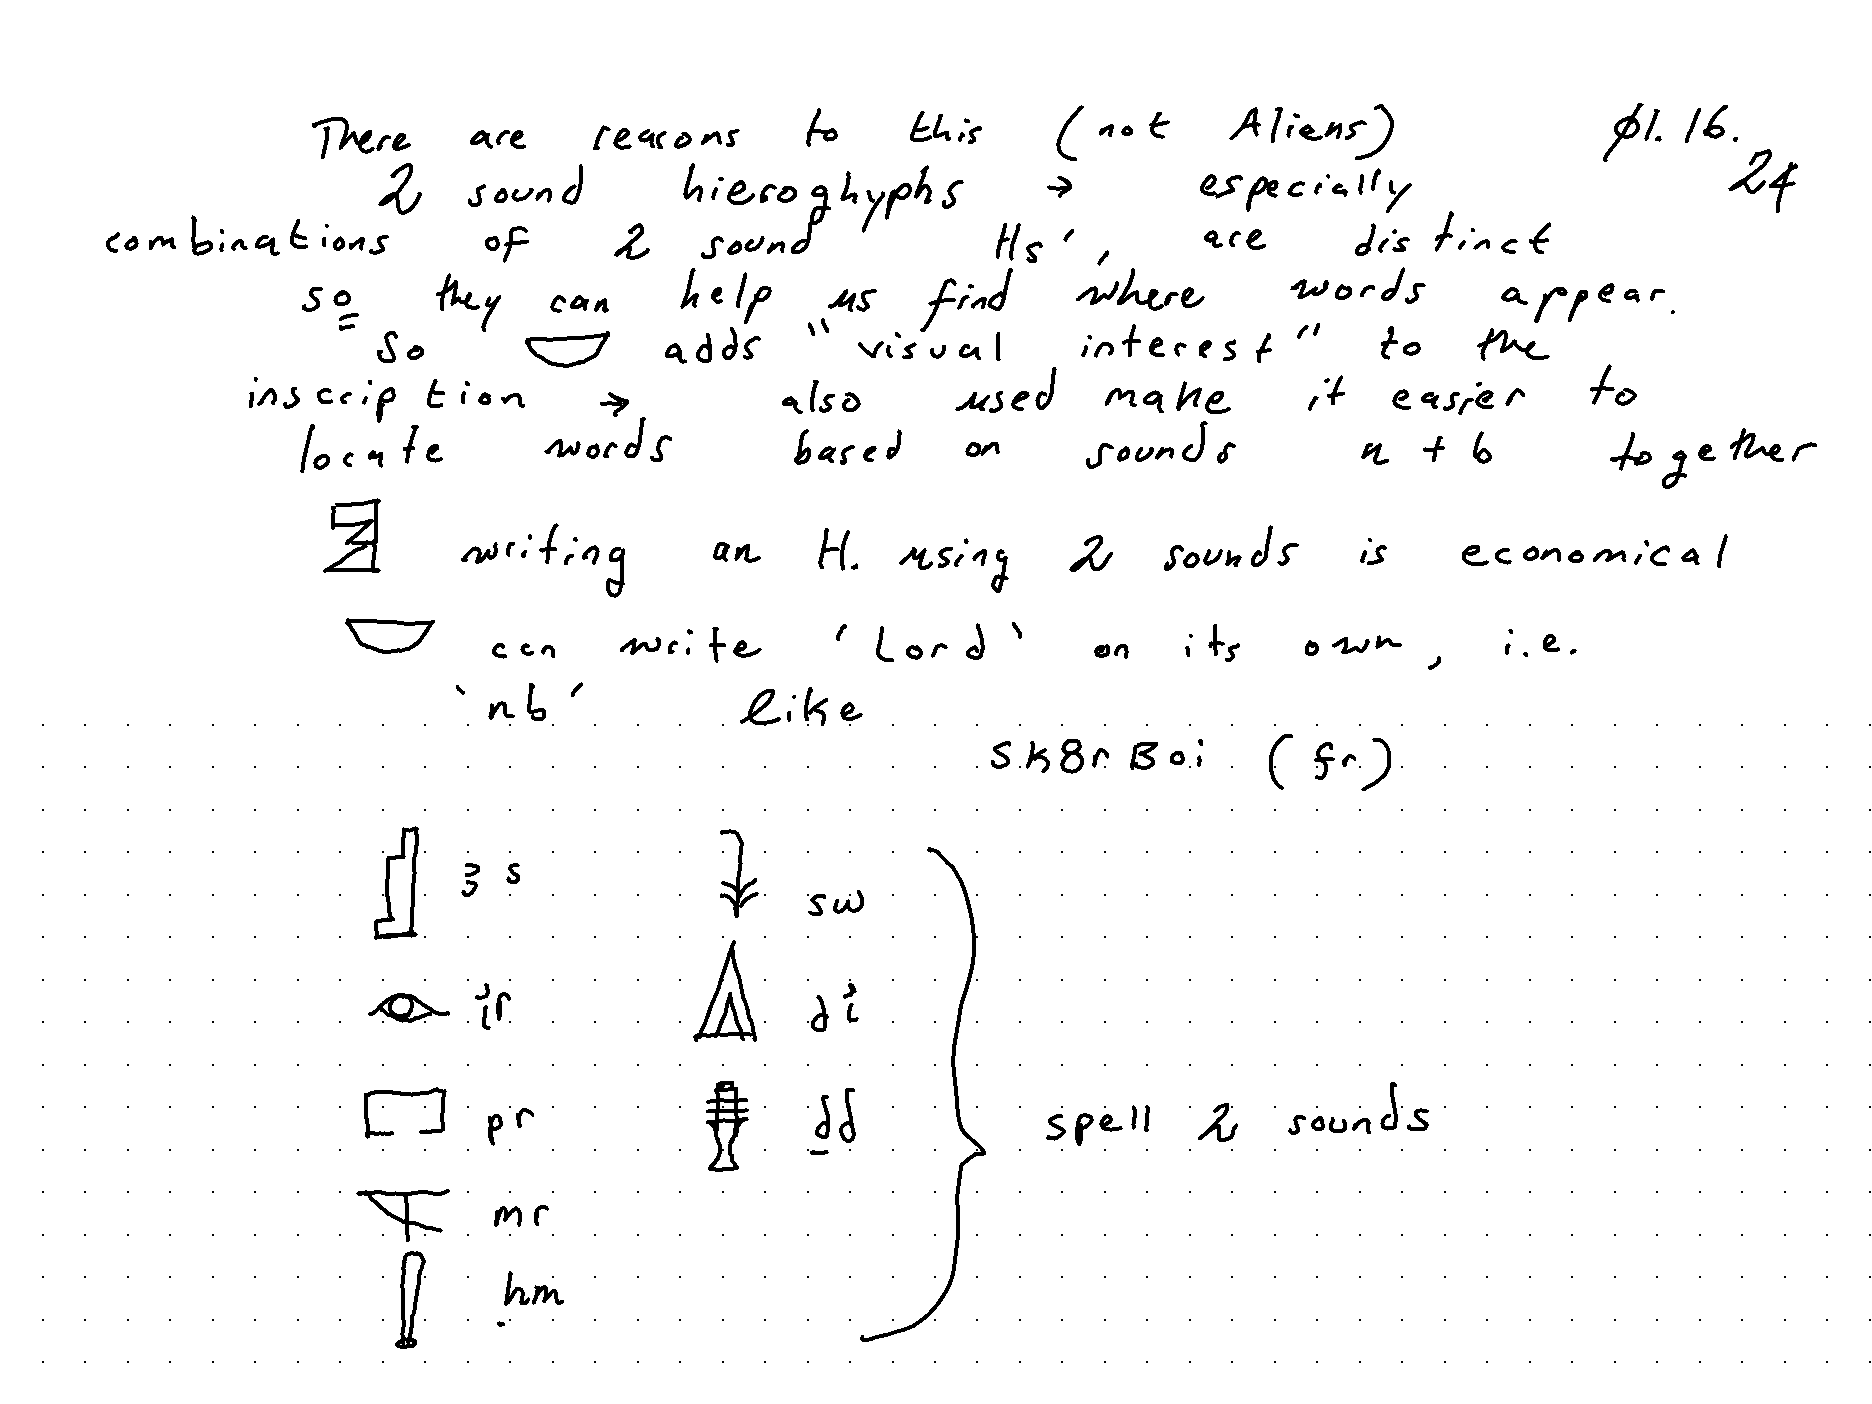 There are reasons to this (not Aliens) ø1.16.
2 sound hieroghyphs → especially 24
combinations of 2 sound Hs', are distinct
so they can help us find where words appear.
So adds "visual interest" to the
inscription → also used make it easier to
locate words based on sounds n + b together
writing an H. using 2 sounds is economical
can write 'Lord' on its own, i.e.
'nb' like
Sk8r Boi (fr)
ꜣs sw
ỉr dỉ
pr ḏd
spell 2 sounds
mr
ḥm